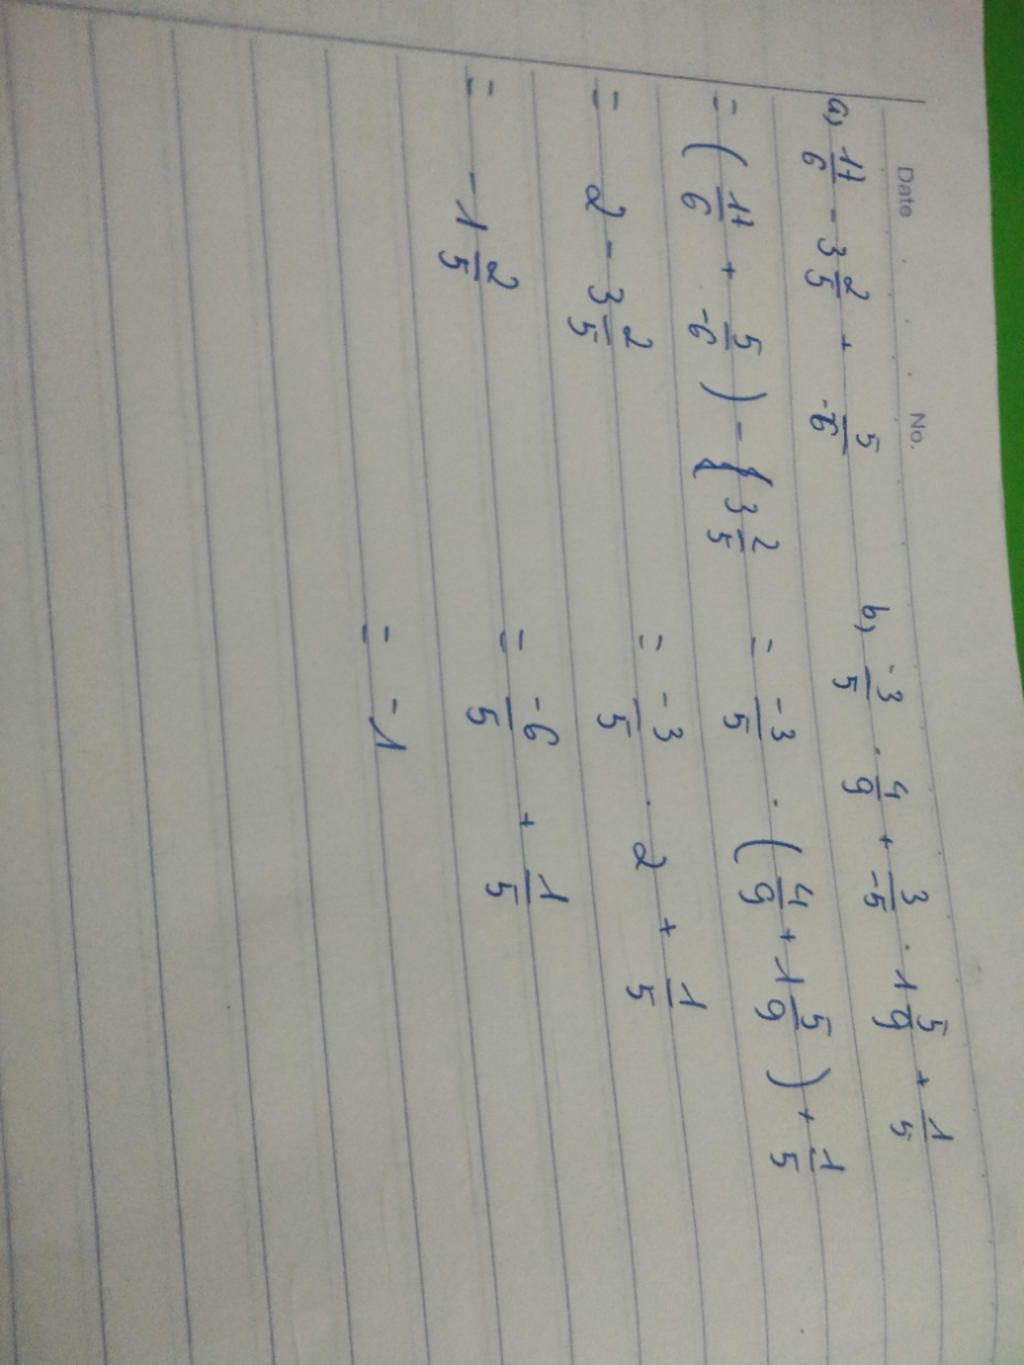 Date No.
a, 17/6 - 3 2/5 + 5/-6
= ( 17/6 + 5/-6 ) - 3 2/5
= 2 - 3 2/5
= - 1 2/5
b, -3/5 . 4/9 + 3/-5 . 1 5/9 + 1/5
= -3/5 . ( 4/9 + 1 5/9 ) + 1/5
= -3/5 . 2 + 1/5
= -6/5 + 1/5
= -1